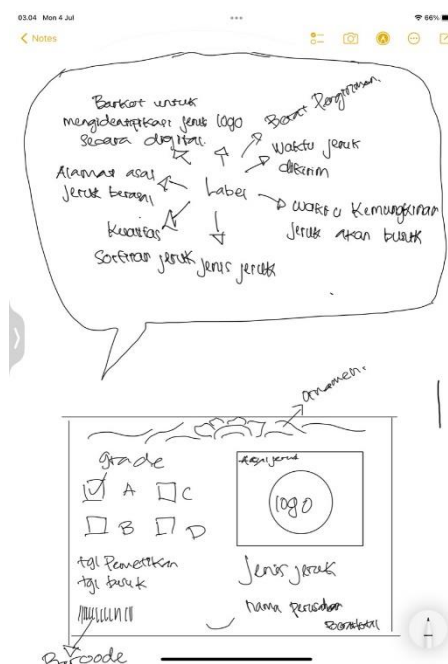 03.04 Mon 4 Jul
66%
Notes
Barkot untuk
mengidentifikasi jenis logo
secara digital.
Berat Pengiriman
Waktu jeruk
dikirim
Alamat asal
jeruk berasal
Label
Waktu Kemungkinan
jeruk akan busuk
Kualitas
Sortiran jeruk
jenis jeruk
ornamen.
grade
A
C
B
D
logo
tgl Pemetikan
tgl busuk
Jenis jeruk
Nama
Barcode